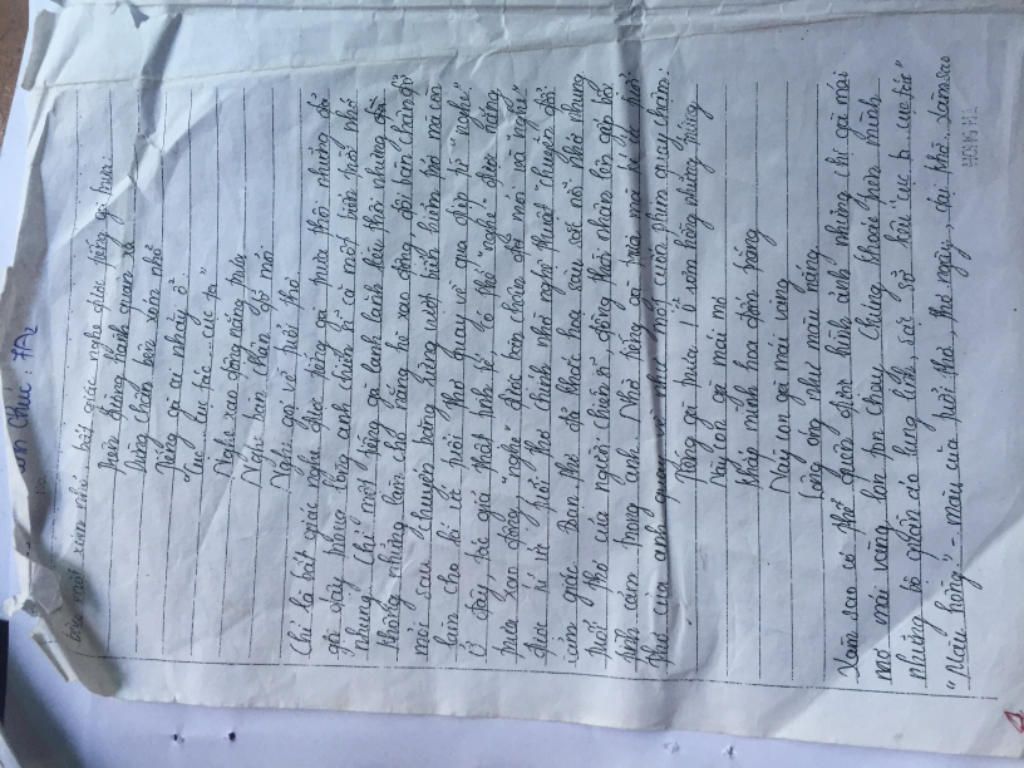 7A2
bên một xóm nhỏ, bất giác nghe được tiếng gà trưa:
Trên đường hành quân xa
Dừng chân bên xóm nhỏ
Tiếng gà ai nhảy ổ:
"Cục... cục tác... cục ta"
Nghe xao động nắng trưa
Nghe bàn chân đỡ mỏi
Nghe gọi về tuổi thơ
Chỉ là bất giác nghe được tiếng gà trưa thôi nhưng đã
gợi dậy trong lòng anh chiến sĩ cả một biển trời nhớ
nhung. Chỉ một tiếng gà lanh lảnh kêu thôi nhưng đã
không những làm cho nắng hè xao động, đôi bàn chân đỡ
mỏi sau chuyến băng rừng vượt hiểm mà còn
làm cho kí ức tuổi thơ quay về qua điệp từ "nghe".
Ở đây, tác giả thật tinh tế, có thể "nghe" được nắng
trưa xao động, "nghe" được bàn chân đỡ mỏi và "nghe"
được kí ức tuổi thơ chính nhờ nghệ thuật chuyển đổi
cảm giác. Bạn thơ đã khắc hoạ sâu sắc nỗi nhớ nhung
tuổi thơ của người chiến sĩ, đồng thời nhân lên gấp bội
tình cảm trong anh. Nhờ tiếng gà trưa mà kí ức tuổi
thơ của anh quay về như một cuốn phim quay chậm:
Tiếng gà trưa
Ổ rơm hồng những trứng
Này con gà mái mơ
Khắp mình hoa đốm trắng
Này con gà mái vàng
Lông óng như màu nắng
Làm sao có thể quên được hình ảnh những chú gà mái
mơ, mái vàng lon ton chạy, chúng khoe thân mình
những bộ quần áo lung linh, sặc sỡ kêu "cục... cục tác"
"Màu hồng" - màu của tuổi thơ, thơ ngây, dại khờ. Làm sao